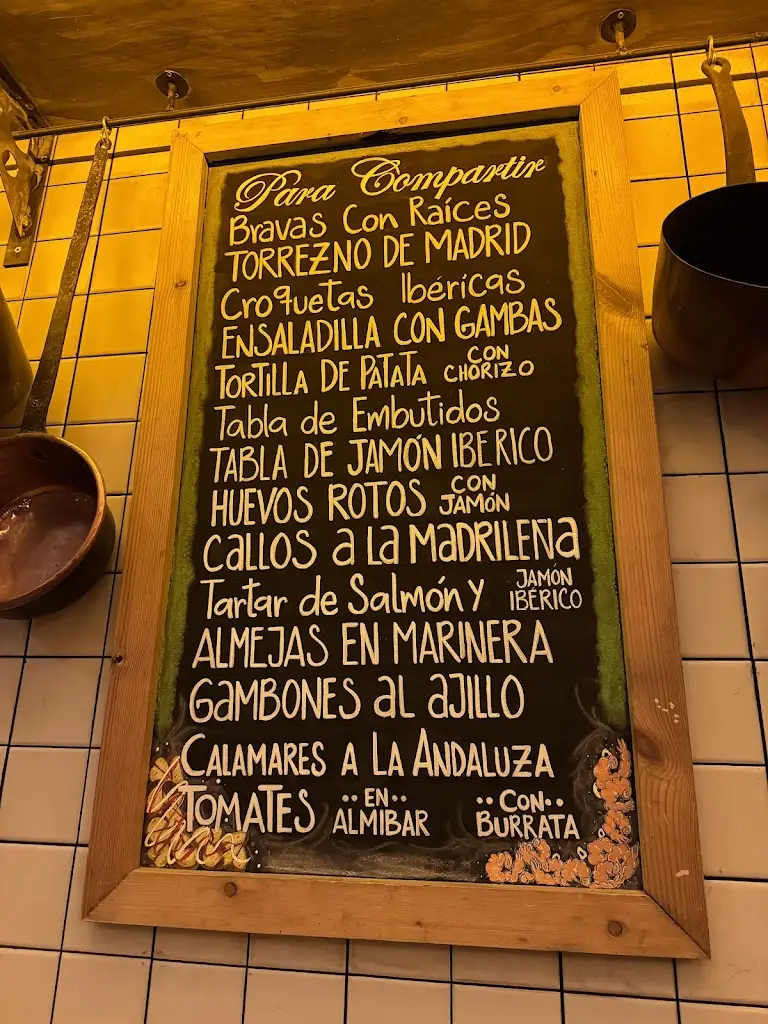 Para Compartir
Bravas Con Raíces
TORREZNO DE MADRID
Croquetas Ibéricas
ENSALADILLA CON GAMBAS
TORTILLA DE PATATA CON CHORIZO
Tabla de Embutidos
TABLA DE JAMÓN IBERICO
HUEVOS ROTOS CON JAMÓN
CALLOS a La MaDRILEÑA
Tartar de Salmón y JAMÓN IBÉRICO
ALMEJAS EN MARINERA
GaMBONES aL aJILLO
CALAMARES A LA ANDALUZA
TOMATES ··EN·· ALMIBAR ··CON·· BURRATA